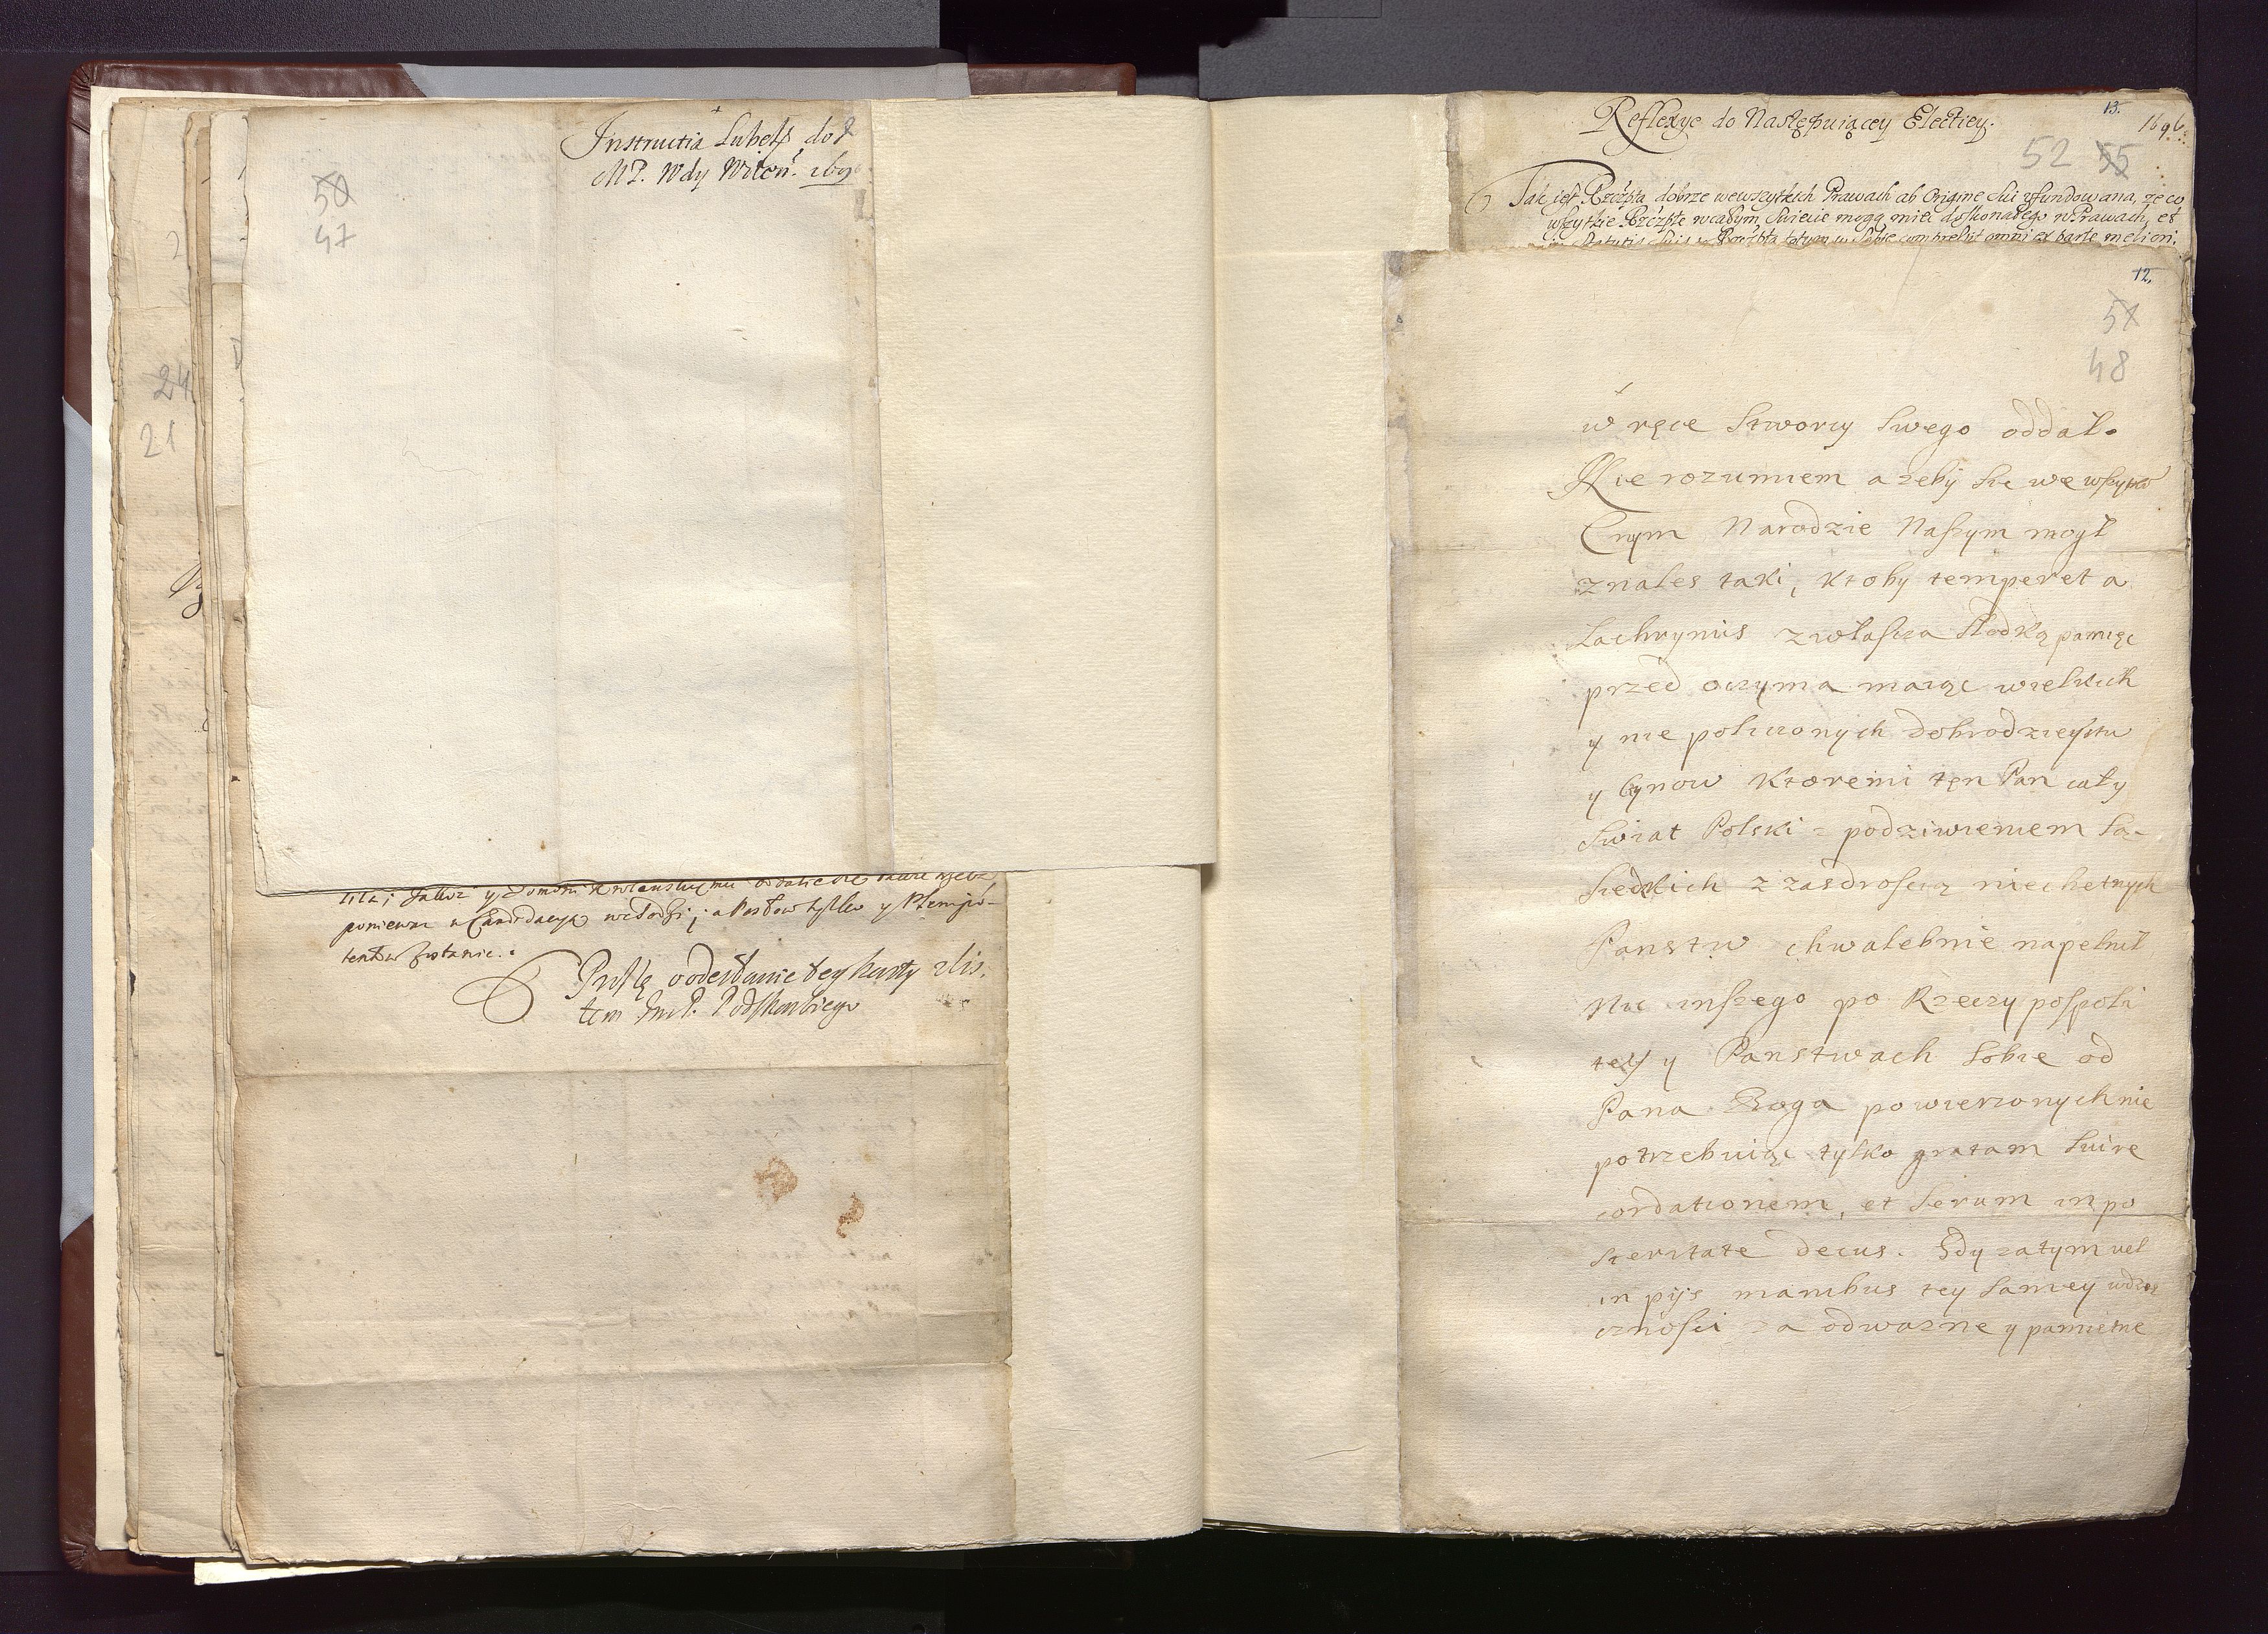 Instructia Lubels. do J
MP. Wdy Witeb. 169
50
47
24
21
poniewaz w Candidacyą wchodzi; a Posłow tylko y Plenipo-
tentow zostanie.
Proszę o odesłanie tey karty z lis.
tem Jm P. Podskarbiego
Reflexye do Następuiącey Electiey.
13.
1696.
52 55
Tak iest Rzeczpta dobrze wewszytkich Prawach ab Origine sui ufundowana, ze co
wszytkie Rzeczpte wcałym swiecie mogą miec doskonałego w Prawach, et
in Statutis suis Rzeczpta totum in sobie comprehit omni ex parte meliori,
12.
51
48
w ręce Stworcy Swego oddał.
Nie rozumiem a zeby sie we wszytko
Cnym Narodzie Naszym mogł
znales taki, ktoby temperet a
Lachrymis zwłascza słodką pamięc
przed oczyma maiąc wielkich
y nie policzonych dobrodzieystw
y Cynow ktoremi ten Pan cały
Swiat Polski z podziwieniem Są-
siedzkich z zasdroscią niechetnych
Panstw chwalebnie napełnił
Nic inszego po Rzeczy pospoli
tey y Panstwach sobie od
Pana Boga powierzonych nie
potrzebuiąc tylko gratam sui re
cordationem, et serum in po
steritate decus. Gdy zatym vel
in pijs manibus tey samey wdzię
cznosci za odwazne y pamietne